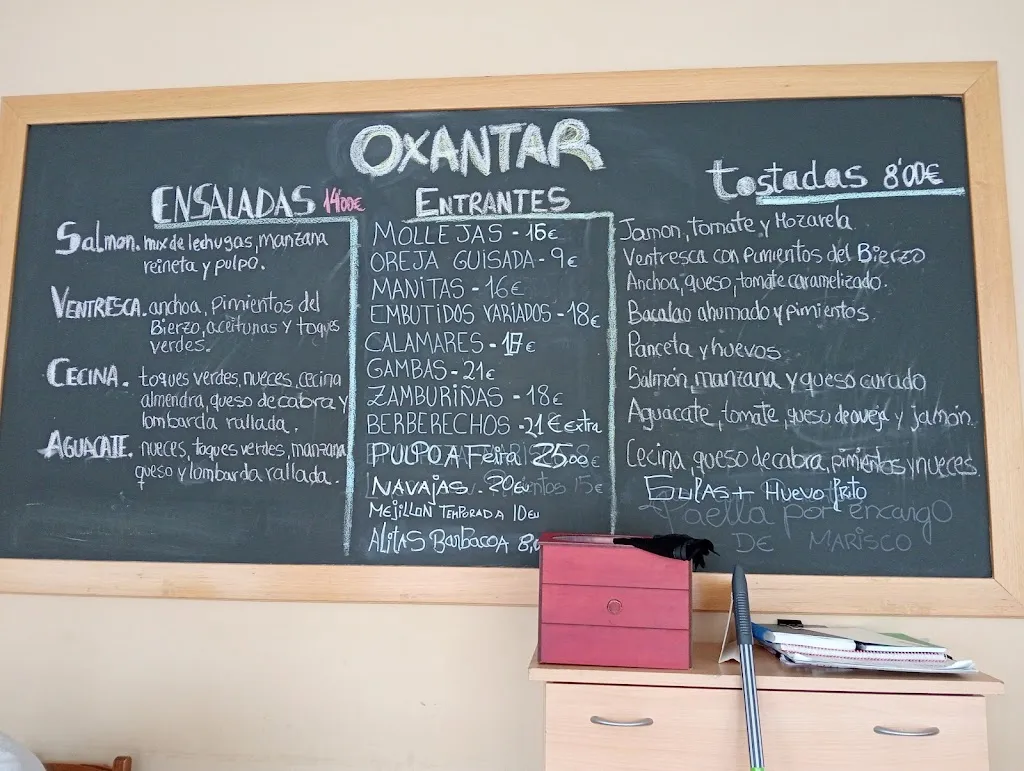 OXANTAR
ENSALADAS 14'00€
Salmon. mix de lechugas, manzana
reineta y pulpo.
VENTRESCA. anchoa, pimientos del
Bierzo, aceitunas y toques
verdes.
CECINA. toques verdes, nueces, cecina
almendra, queso de cabra y
lombarda rallada.
AGUACATE. nueces, toques verdes, manzana
queso y lombarda rallada.
ENTRANTES
MOLLEJAS - 16€
OREJA GUISADA - 9€
MANITAS - 16€
EMBUTIDOS VARIADOS - 18€
CALAMARES - 17€
GAMBAS - 21€
ZAMBURIÑAS - 18€
BERBERECHOS - 21€ extra
PULPO A Feira 25'00€
NAVAJAS - 20eu
MEJILLON TEMPORADA 10eu
ALITAS BARBACOA 8,0
tostadas 8'00€
Jamon, tomate y Mozarela
Ventresca con Pimientos del Bierzo
Anchoa, queso, tomate caramelizado.
Bacalao ahumado y pimientos.
Panceta y huevos.
Salmón, manzana y queso curado
Aguacate, tomate, queso de oveja y jamón.
Cecina, queso de cabra, pimientos y nueces
GULAS + HUEVO frito
Paella por encargo
DE MARISCO